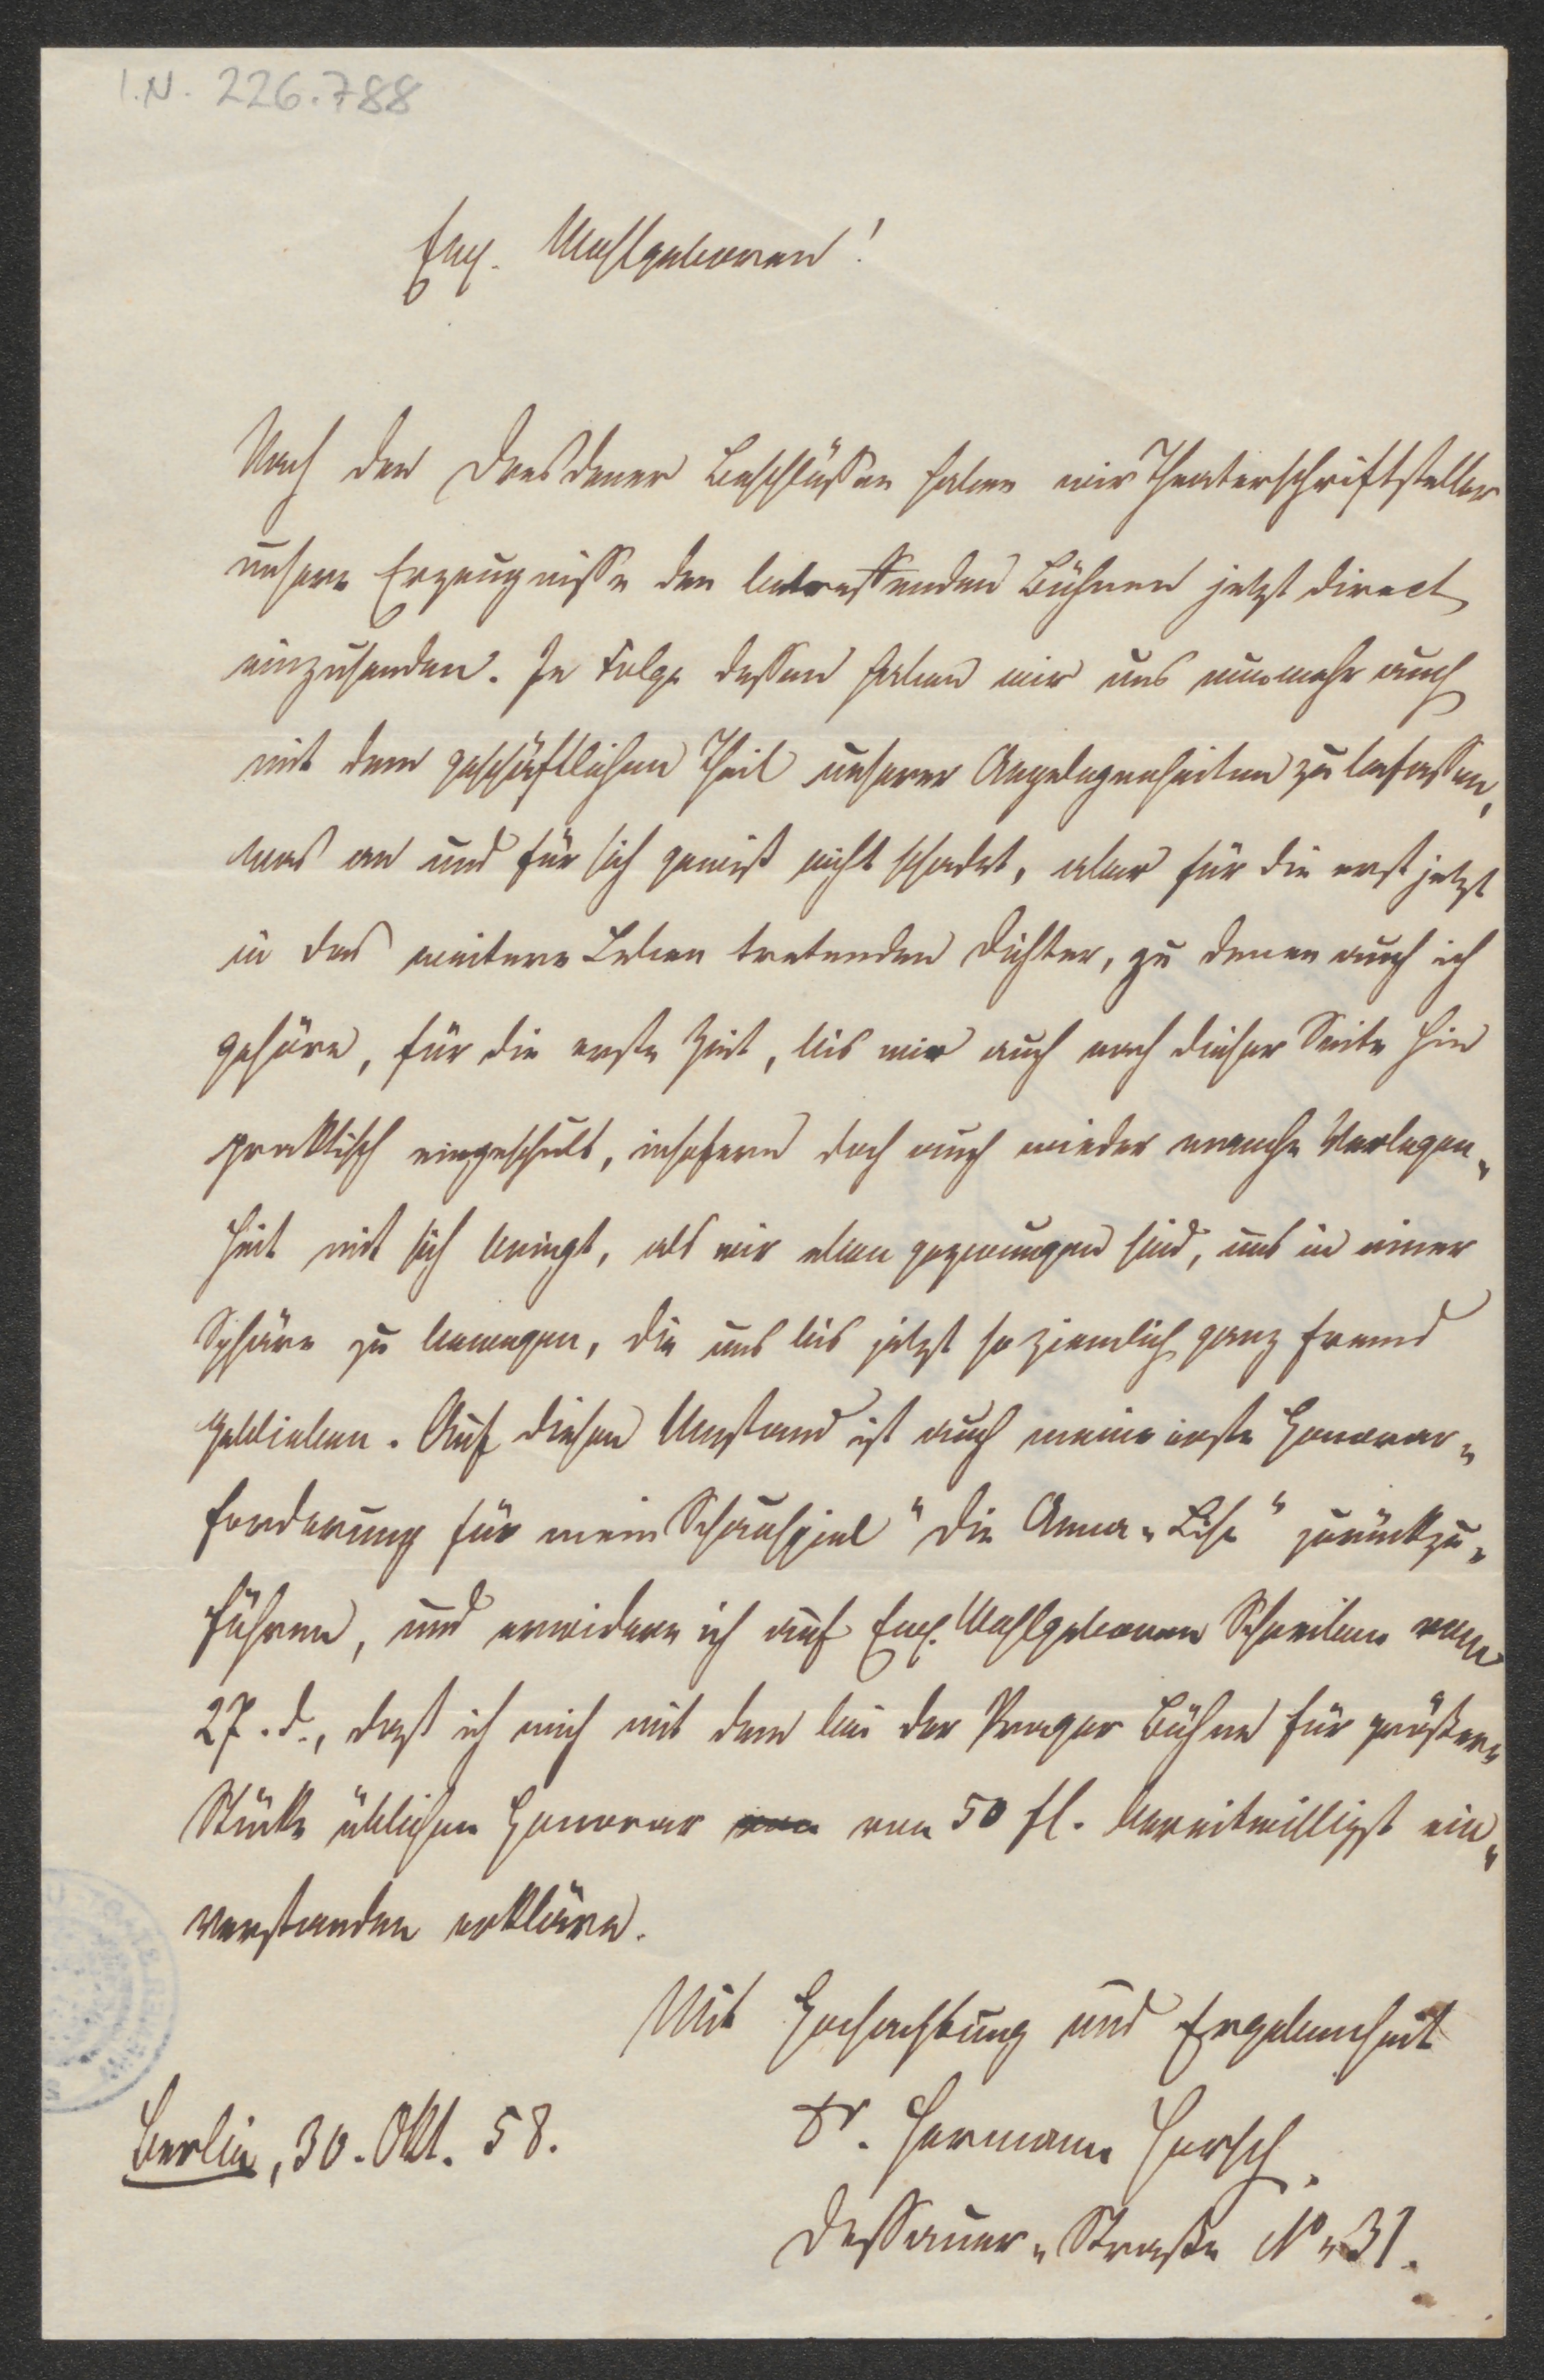 I.N. 226.788
Ew. Wohlgeboren!
Nach den Dresdener Beschlüssen haben wir Theaterschriftsteller
unsere Erzeugnisse den betreffenden Bühnen jetzt direct
einzusenden. In Folge dessen haben wir uns nunmehr auch
mit dem geschäftlichen Theil unserer Angelegenheiten zu befassen,
was an und für sich gewiß nicht schadet, aber für die erst jetzt
in das weitere Leben tretenden Dichter, zu denen auch ich
gehöre, für die erste Zeit, bis wir auch nach dieser Seite hin
praktisch eingeschult, insofern doch auch wieder manche Verlegen-
heit mit sich bringt, als wir eben gezwungen sind, uns in einer
Sphäre zu bewegen, die uns bis jetzt so ziemlich ganz fremd
geblieben. Auf diesen Umstand ist auch meine erste Honorar-
forderung für mein Schauspiel "Die Anna-Lise" zurückzu-
führen, und erwidere ich auf Ew. Wohlgeboren Schreiben vom
27. d., daß ich mich mit dem bei der Prager Bühne für größere
Stücke üblichen Honorar von 50 fl. bereitwilligst ein-
verstanden erkläre.
Mit Hochachtung und Ergebenheit
Dr. Hermann Hersch,
Berlin, 30. Okt. 58.
Dessauer-Straße No 31.